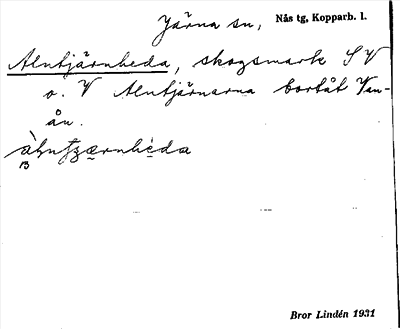 Järna sn, Nås tg, Kopparb. l.
Alntjärnheda, skogsmark SV
o. V Alntjärnarna bortåt Van-
ån.
Bror Lindén 1931